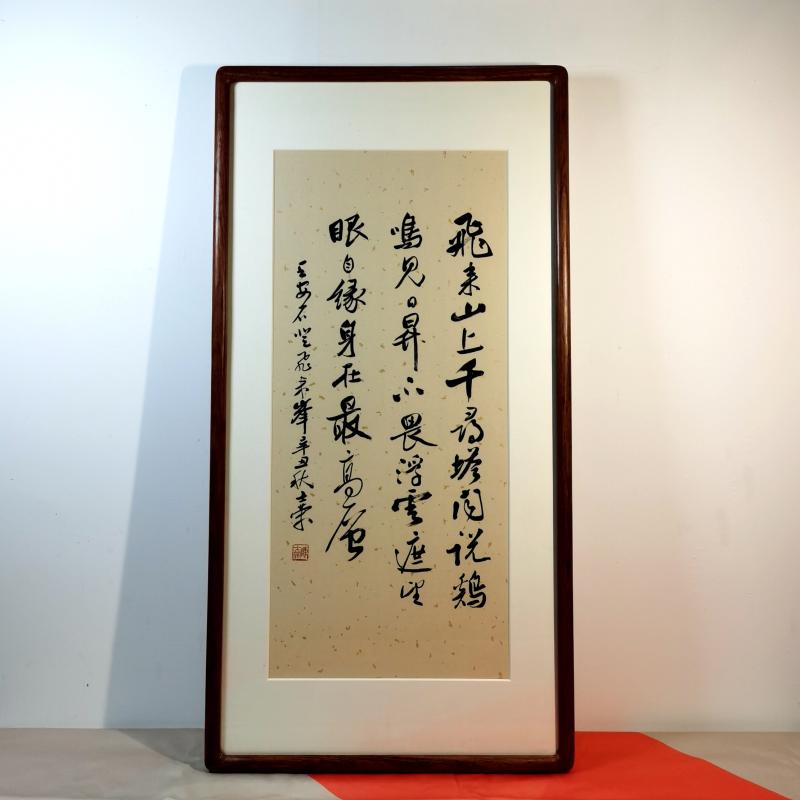 飛来山上千尋塔闻说鷄
鳴見日昇不畏浮雲遮望
眼自緣身在最高层
王安石登飛来峰辛丑秋